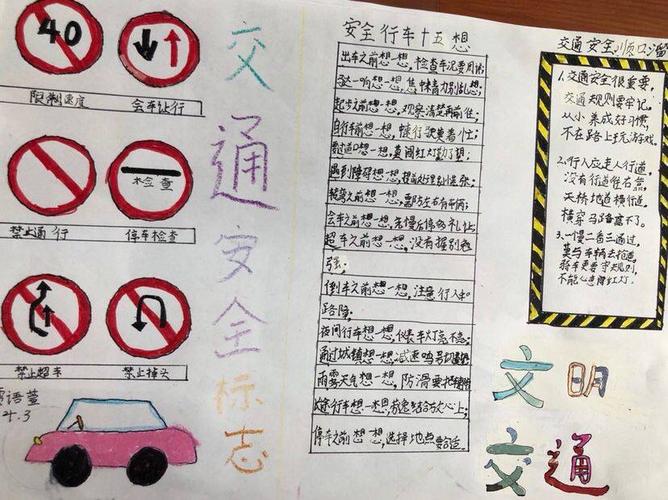 40
限制速度
会车让行
禁止通行
检查
停车检查
禁止超车
禁止掉头
语萱
4.3
交通安全标志
安全行车十五想
出车之前想一想,检查车况要周详;
起步之前想一想,观察清楚再前往;
自行车前想一想,
会车之前想一想,先慢后停多礼让;
超车之前想一想,没有握别勉
强;
倒车之前想一想,注意行人
路障;
夜间行车想一想,仪表车灯
通过城镇想一想,减速鸣号
雨雾天气想一想,防滑要
停车之前想一想,选择地点要合适。
交通安全顺口溜
1、交通安全很重要,
交通规则要牢记,
从小养成好习惯,
不在路上玩游戏。
2、行人应走人行道,
没有行道往右靠,
天桥地道横行道,
横穿马路离不了。
3、一慢二看三通过,
莫与车辆去抢道,
骑车更要守规则,
不能心急闯红灯。
文明
交通